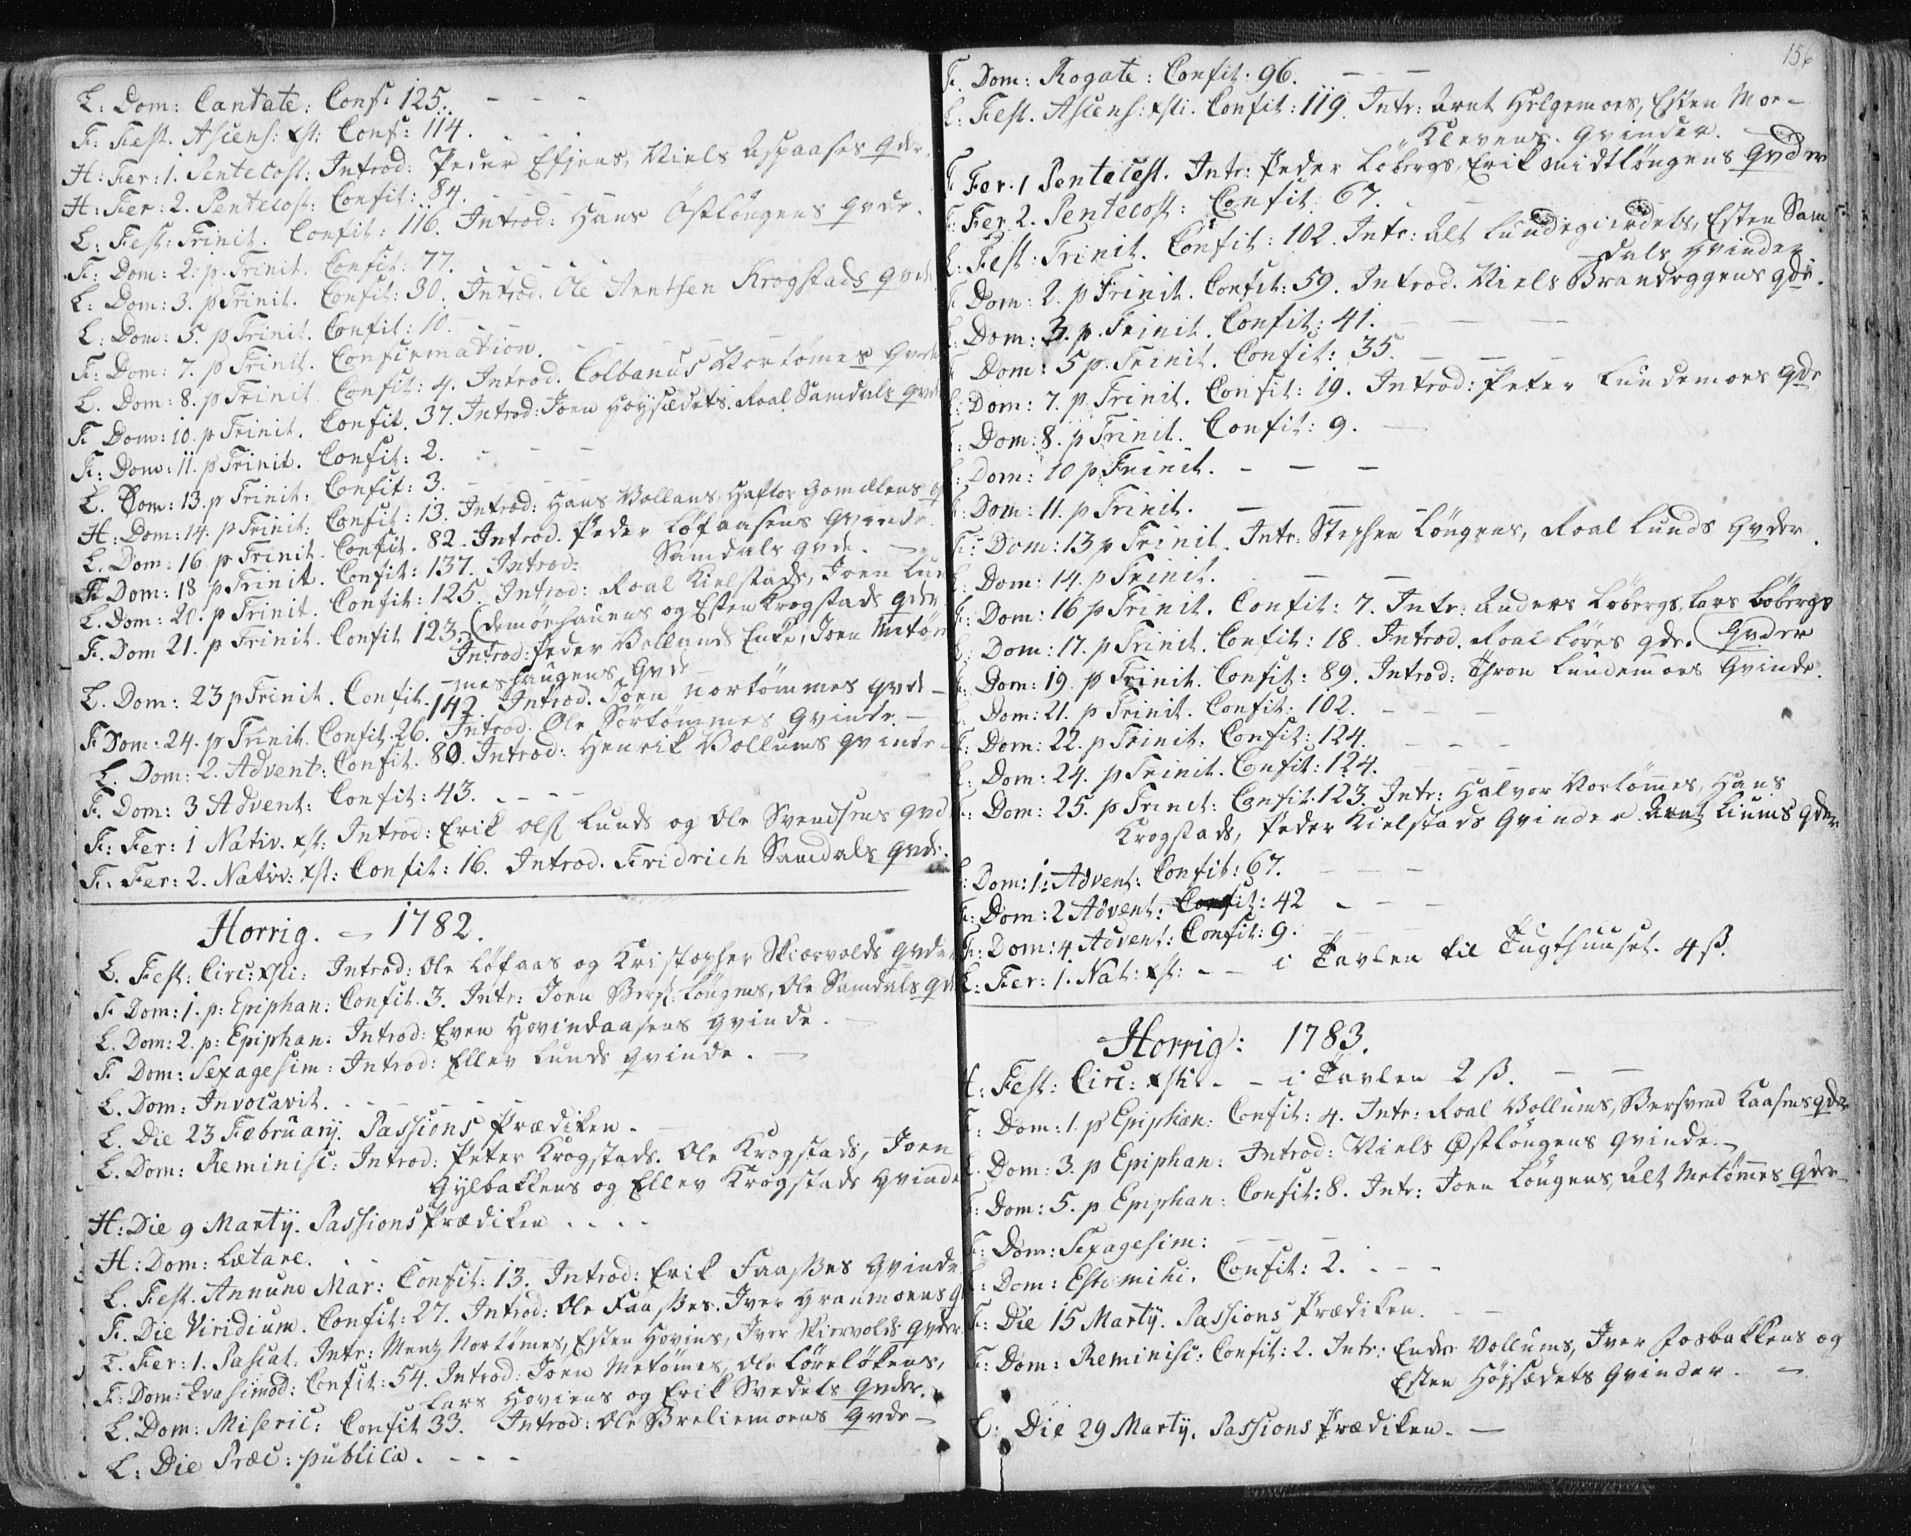 L: Dom: Cantate: Conf: 125. - - -
F: Fest. Ascens: xst: Conf: 114. - - -
H: Fer: 1. Pentecost: Introd: Peder Efjens, Niels Aspaases Qvdr.
H: Fer: 2. Pentecost: Confit: 84. - - -
L: Fest: Trinit. Confit: 116. Introd: Hans Östlöngens Qvde.
F: Dom: 2. p. Trinit. Confit: 77. - - -
L: Dom: 3. p Trinit. Confit: 30. Introd. Ole Arntsen Krogstads Qvde
L: Dom: 5. p Trinit. Confit: 10. - -
F: Dom: 7. p Trinit. Confirmation. - - -
L. Dom: 8. p Trinit. Confit: 4. Introd. Colbanus Nortömes Qvde
F. Dom: 10. p Trinit. Confit. 37. Introd: Joen Höysædets. Roal Samdals Qvdr
F: Dom: 11. p Trinit. Confit: 2. - - -
L. Dom: 13. p Trinit: Confit: 3. - - -
H: Dom: 14. p Trinit: Confit: 13. Introd: Hans Vollans, Haftor Gomolens q
L. Dom: 16 p Trinit. Confit. 82. Introd. Peder Löfaasens Qvinde.
F. Dom: 18 p Trinit. Confit: 137. Introd: Samdals Qvde. -
L. Dom: 20. p Trinit. Confit: 125. Introd: Roal Kielstads, Joen Lun
F. Dom 21. p Trinit. Confit 123. (demöeshauens og Esten Krogstads Qder
Introd: Peder Vollands Enke, Joen Metöm
meshaugens Qvde
L. Dom: 23 p Trinit. Confit. 142 Introd. Joen Nortömmes Qvde -
F. Dom: 24. p Trinit. Confit. 26. Introd: Ole Sörtömmes Qvinde. -
L. Dom: 2. Advent: Confit. 80. Introd: Henrik Vollums Qvinde -
F. Dom: 3 Advent: Confit: 43. - - -
F: Fer: 1 Nativ. xst: Introd: Erik Ols Lunds og Ole Svendsens Qvd
F: Fer: 2. Nativ: xst: Confit: 16. Introd. Fridrich Samdals Qvde.
Horrig. - 1782.
L. Fest: Circ: xsti: Introd: Ole Löfaas og Kristopher Skiervolds Qvder
F Dom: 1. p: Epiphan: Confit. 3. Intr: Joen Bers: Löngens, Ole Samdals Qd
L. Dom: 2. p: Epiphan: Introd: Even Hovindaasens Qvinde. -
F. Dom: Sexagesim: Introd: Ellev Lunds Qvinde. -
L. Dom: Invocavit. - - - - -
L. Die 23 Februarÿ. Passions Prædiken. -
L. Dom: Reminisc: Introd: Peter Krogstads. Ole Krogstads, Joen
Gylbakkens og Ellev Krogstads Qvinde
H: Die 9 Martÿ. Passions Prædiken . . . .
H: Dom: Lætare. - - -
L. Fest. Annunc Mar: Confit: 13. Introd: Erik Faasses Qvinde
F. Die Viridium. Confit: 27. Introd: Ole Faasses. Iver Granmoens q
L. Fer: 1. Pascat: Intr: Mentz Nortömes, Esten Hovins, Iver Skiervolds Qvder
F: Dom: Qvasimod: Confit: 54. Introd: Joen Metömes, Ole Löreløkens,
Lars Hoviens og Erik Svedets Qvder.
L. Dom: Miseric: Confit 33. Introd: Ole Breliemoens Qvde -
L: Die Præc: publica. - - -
156
F. Dom: Rogate: Confit: 96. - - -
L: Fest. Ascens: xsti. Confit: 119. Intr: Arnt Helgemoes, Esten Moe-
Klevens. Qvinder.
F. Fer: 1 Pentecost. Intr: Peder Löbergs, Erik Midtlöngens Qvder
F: Fer 2. Pentecost: Confit: 67. - -
L: Fest: Trinit. Confit: 102. Intr: Alt Lundegierdets, Esten Sam
dals Qvinder
F Dom: 2. p Trinit. Confit: 59. Introd. Niels Brandeggens Qde.
L: Dom: 3. p. Trinit. Confit: 41. - - -
F Dom: 5 p. Trinit. Confit: 35. - - -
L: Dom: 7. p Trinit. Confit: 19. Introd: Peter Lundemoes Qde
F: Dom: 8. p Trinit. Confit: 9. -
L: Dom: 10 p Trinit. - - -
F: Dom: 11. p Trinit. - - -
F: Dom: 13 p Trinit. Intr: Stephen Löngens, Roal Lunds Qvder.
L. Dom: 14. p Trinit. - - -
F: Dom: 16 p Trinit. Confit: 7. Intr: Anders Löbergs, Lars Löbergs
L: Dom: 17. p Trinit. Confit: 18. Introd. Roal Löres Qde. (Qvder
F. Dom: 19. p Trinit. Confit: 89. Introd: Thron Lundemoes Qvinde.
L. Dom: 21. p Trinit. Confit: 102. - - -
F: Dom: 22. p Trinit. Confit: 124. - - -
L: Dom: 24. p Trinit. Confit: 124. - - -
F: Dom: 25. p Trinit: Confit. 123. Intr: Halvor Nortömes, Hans
Krogstads, Peder Kielstads Qvinder. Arnt Liums Qder
L: Dom: 1: Advent: Confit: 67. - - -
F: Dom: 2 Advent: Confit: 42 - - -
F: Dom: 4. Advent: Confit: 9. - - -
L: Fer: 1. Nat: xst: - - i Tavlen til Tugthuuset. 4 ß.
Horrig: 1783.
H: Fest: Circ: xsti. - - i Tavlen 2 ß. - -
F: Dom: 1. p Epiphan: Confit: 4. Intr: Roal Vollums, Bersvend Kaasens Qder
L. Dom: 3. p Epiphan: Introd: Niels Østlöngens Qvinde. -
F: Dom: 5. p Epiphan: Confit: 8. Intr: Joen Löngens, Alt Metömes Qder -
F: Dom: Sexagesim: - - -
L: Dom: Estomihi. Confit: 2. - - -
F: Die 15 Martÿ. Passions Prædiken. - -
F: Dom: Reminisc: Confit: 2. Intr: Ender Vollums, Iver Fosbakkens og
Esten Höysædets Qvinder. -
L: Die 29 Martÿ. Passions Prædiken. -